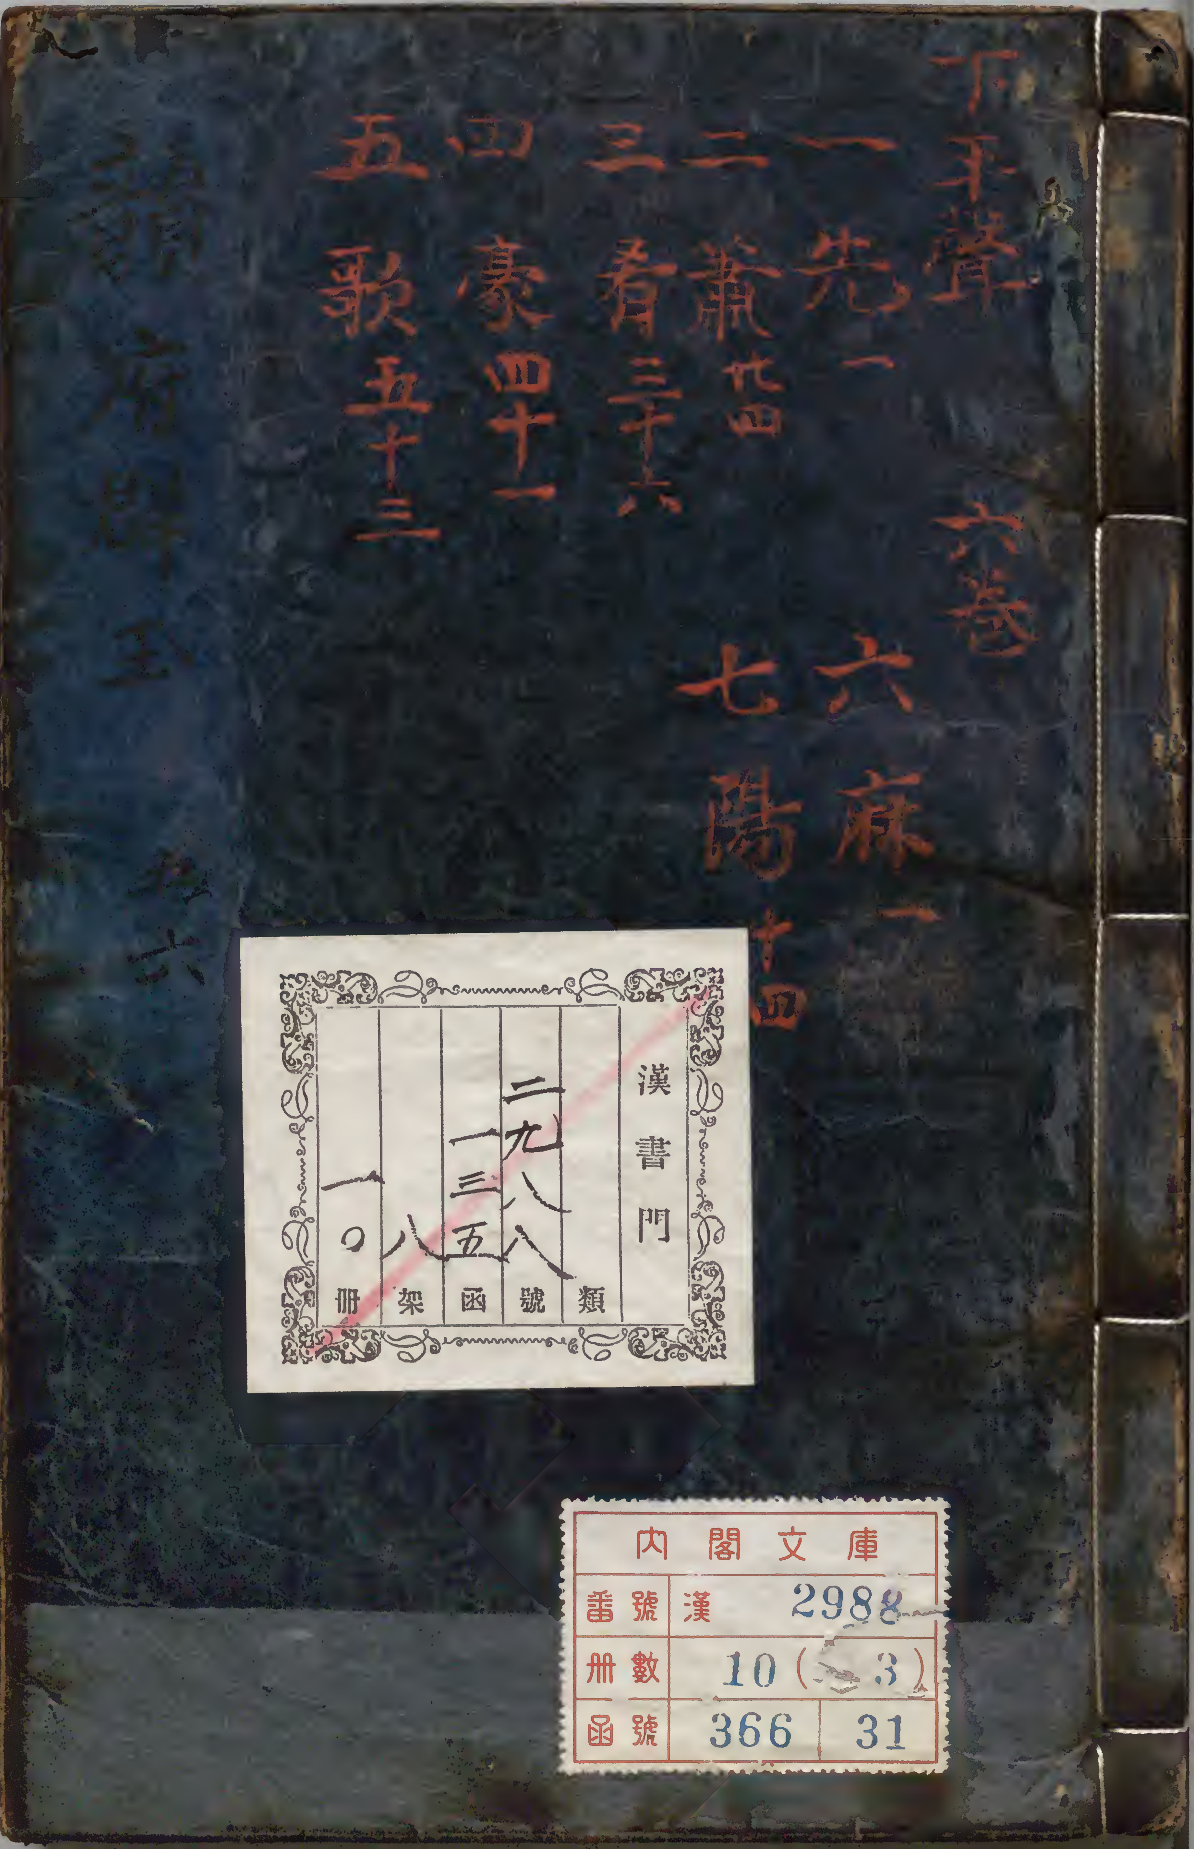 下平聲
六卷
一 先 一
二 蕭 廿四
三 肴 三十六
四 豪 四十一
五 歌 五十三
六 麻 一
七 陽 十四
韻府群玉
五六
漢書門
類
二九八八號
一三五函
八架
一〇冊
內閣文庫
番號 漢 2988
冊數 10( 3)
函號 366 31